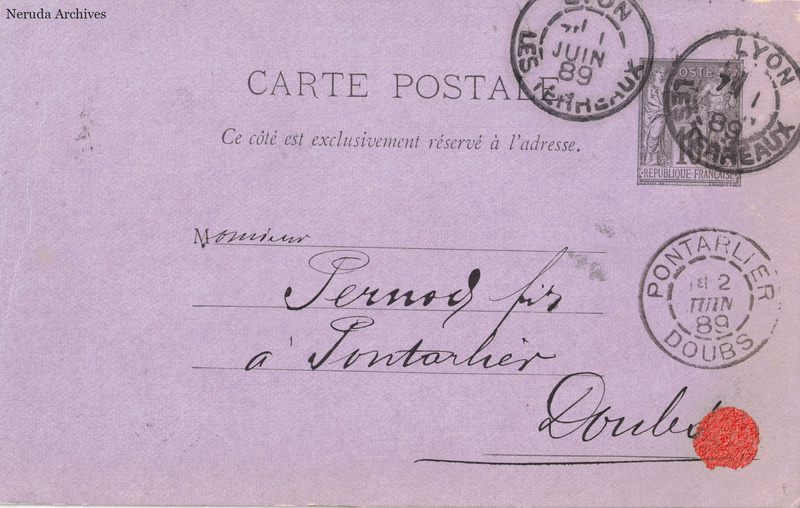 Neruda Archives
CARTE POSTALE
Ce côté est exclusivement réservé à l'adresse.
LYON
1
JUIN
89
LES TERREAUX
POSTES
10
REPUBLIQUE FRANÇAISE
LYON
1
89
LES TERREAUX
Monsieur
Pernod fils
à Pontarlier
Doubs
PONTARLIER
2
JUIN
89
DOUBS